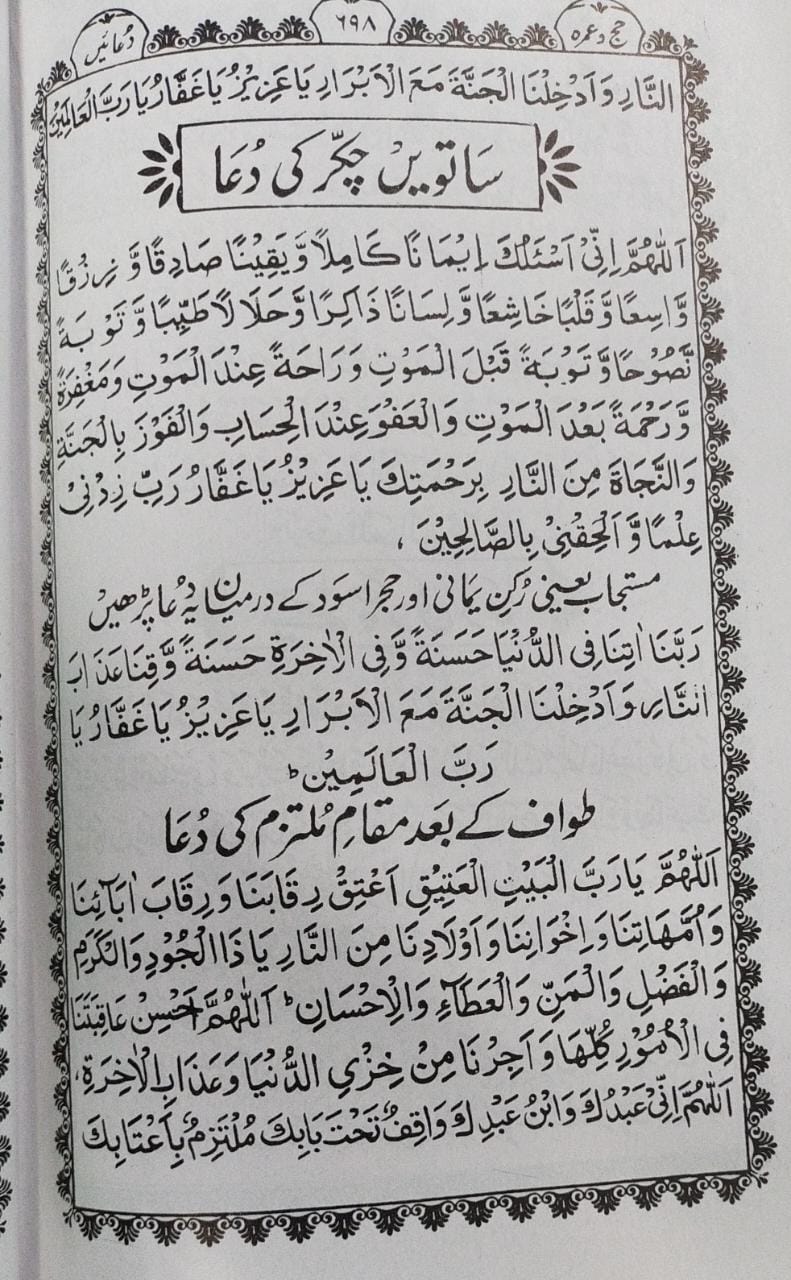 حج و عمرہ
۶۹۸
دعائیں
النَّارِ وَاَدْخِلْنَا الْجَنَّةَ مَعَ الْاَبْرَارِ يَا عَزِيْزُ يَا غَفَّارُ يَا رَبَّ الْعَالَمِيْنَ
ساتویں چکّر کی دُعَا
اَللّٰهُمَّ اِنِّیْ اَسْئَلُكَ اِيْمَانًا كَامِلًا وَّيَقِيْنًا صَادِقًا وَّ رِزْقًا
وَّاسِعًا وَّقَلْبًا خَاشِعًا وَّلِسَانًا ذَاكِرًا وَّحَلَالًا طَيِّبًا وَّتَوْبَةً
نَّصُوْحًا وَّتَوْبَةً قَبْلَ الْمَوْتِ وَرَاحَةً عِنْدَ الْمَوْتِ وَمَغْفِرَةً
وَّرَحْمَةً بَعْدَ الْمَوْتِ وَالْعَفْوَ عِنْدَ الْحِسَابِ وَالْفَوْزَ بِالْجَنَّةِ
وَالنَّجَاةَ مِنَ النَّارِ بِرَحْمَتِكَ يَا عَزِيْزُ يَا غَفَّارُ رَبِّ زِدْنِیْ
عِلْمًا وَّاَلْحِقْنِیْ بِالصَّالِحِيْنَ ،
مستجاب یعنی رُکنِ یمانی اور حجر اسود کے درمیان یہ دُعا پڑھیں
رَبَّنَا اٰتِنَا فِی الدُّنْيَا حَسَنَةً وَّفِی الْاٰخِرَةِ حَسَنَةً وَّقِنَا عَذَابَ
النَّارِ وَاَدْخِلْنَا الْجَنَّةَ مَعَ الْاَبْرَارِ يَا عَزِيْزُ يَا غَفَّارُ يَا
رَبَّ الْعَالَمِيْنَ ؕ
طواف کے بعد مقامِ مُلتزم کی دُعَا
اَللّٰهُمَّ يَا رَبَّ الْبَيْتِ الْعَتِيْقِ اَعْتِقْ رِقَابَنَا وَرِقَابَ اٰبَآئِنَا
وَاُمَّهَاتِنَا وَاِخْوَانِنَا وَاَوْلَادِنَا مِنَ النَّارِ يَا ذَا الْجُوْدِ وَالْكَرَمِ
وَالْفَضْلِ وَالْمَنِّ وَالْعَطَآءِ وَالْاِحْسَانِ ؕ اَللّٰهُمَّ اَحْسِنْ عَاقِبَتَنَا
فِی الْاُمُوْرِ كُلِّهَا وَاَجِرْنَا مِنْ خِزْیِ الدُّنْيَا وَعَذَابِ الْاٰخِرَةِ،
اَللّٰهُمَّ اِنِّیْ عَبْدُكَ وَابْنُ عَبْدِكَ وَاقِفٌ تَحْتَ بَابِكَ مُلْتَزِمٌ بِاَعْتَابِكَ